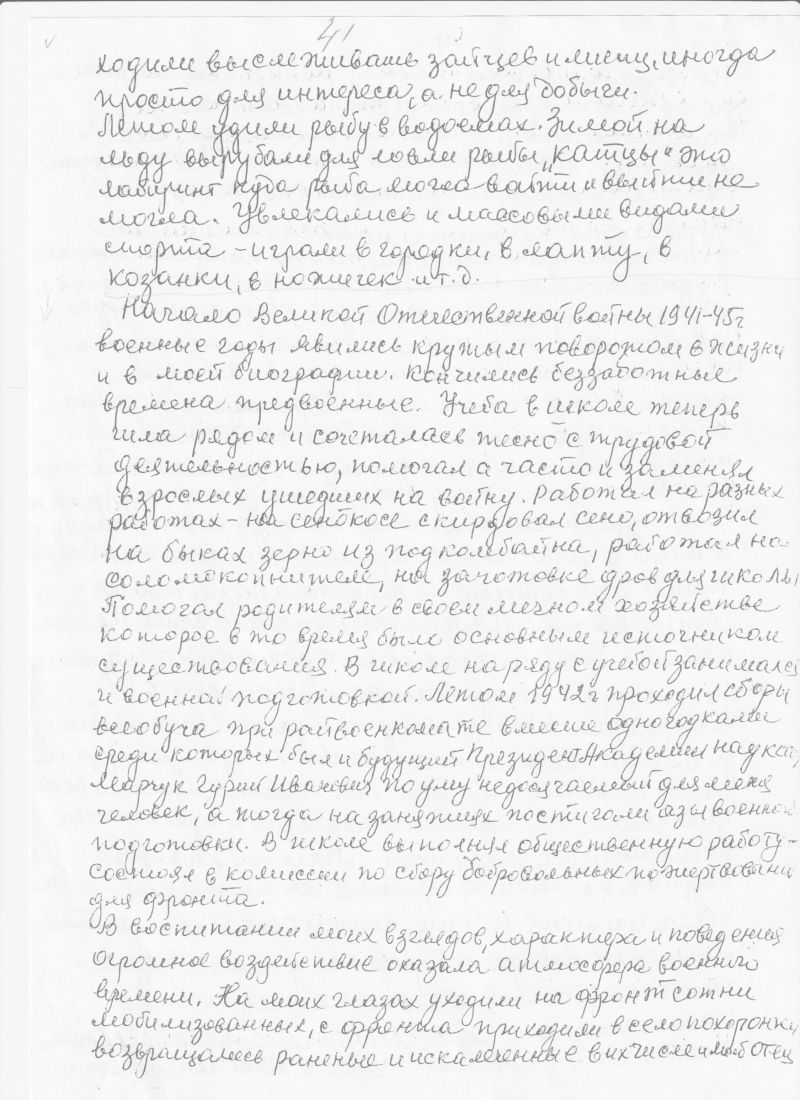 41
ходили выслеживать зайцев и лисиц, иногда
просто для интереса, а не для добычи.
Летом удили рыбу в водоемах. Зимой на
льду вырубали для ловли рыбы „катцы" это
лабиринт куда рыба могла войти и выйти не
могла. Увлекались и массовыми видами
спорта - играли в городки, в лапту, в
козанки, в ножичек и т.д.
Начало Великой Отечественной войны 1941-45г
военные годы явились крутым поворотом в жизни
и в моей биографии. Кончились беззаботные
времена предвоенные. Учеба в школе теперь
шла рядом и сочеталась тесно с трудовой
деятельностью, помогал а часто и заменял
взрослых ушедших на войну. Работал на разных
работах - на сенокосе скирдовал сено, отвозил
на быках зерно из под комбайна, работал на
соломокопнителе, на заготовке дров для школы
Помогал родителям в своем личном хозяйстве
которое в то время было основным источником
существования. В школе наряду с учебой занимался
и военной подготовкой. Летом 1942г проходил сборы
всеобуча при райвоенкомате вместе одногодками
среди которых был и будущий Президент Академии наук
Марчук Гурий Иванович по уму недосягаемый для меня
человек, а тогда на занятиях постигали азы военной
подготовки. В школе выполнял общественную работу-
состоял в комиссии по сбору добровольных пожертвований
для фронта.
В воспитании моих взглядов, характера и поведения
огромное воздействие оказала атмосфера военного
времени. На моих глазах уходили на фронт сотни
мобилизованных, с фронта приходили в село похоронки
возвращались раненые и искалеченные в их числе и мой отец